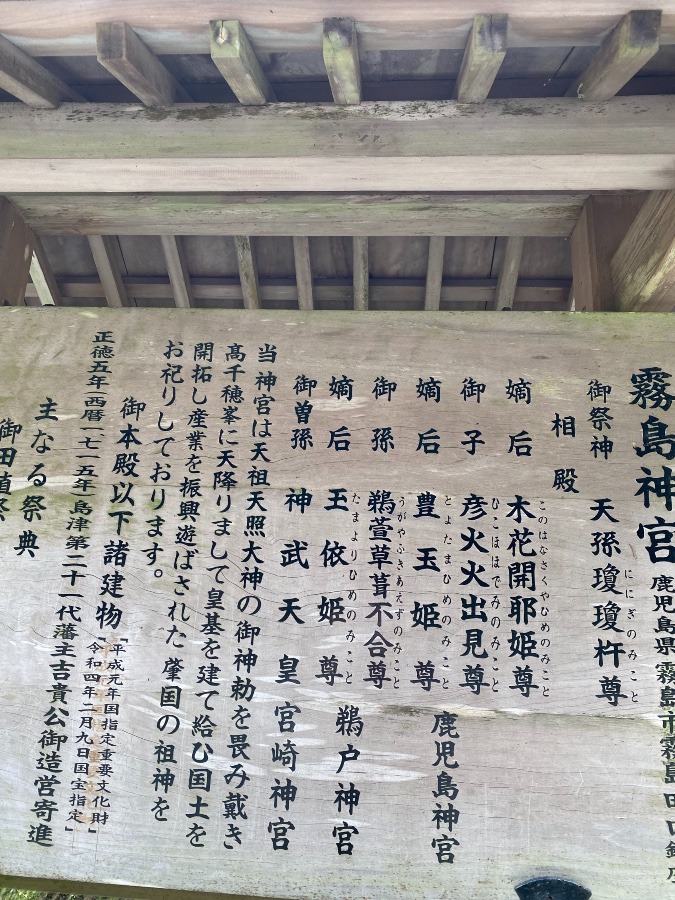 霧島神宮
鹿児島県霧島市霧島田口
御祭神 天孫瓊瓊杵尊
ににぎのみこと
相殿
嫡后 木花開耶姫尊
このはなさくやひめのみこと
御子 彦火火出見尊
ひこほほでみのみこと
嫡后 豊玉姫尊 鹿児島神宮
とよたまひめのみこと
御孫 鵜萱草葺不合尊
うがやふきあえずのみこと
嫡后 玉依姫尊 鵜戸神宮
たまよりひめのみこと
御曽孫 神武天皇 宮崎神宮
当神宮は天祖天照大神の御神勅を畏み戴き
高千穂峯に天降りまして皇基を建て給む国土を
開拓し産業を振興遊ばされた肇国の祖神を
お祀りしております。
御本殿以下諸建物
「平成元年国指定重要文化財」
「令和四年二月九日国宝指定」
正徳五年(西暦一七一五年)島津第二十一代藩主吉貴公御造営寄進
主なる祭典
御田植祭